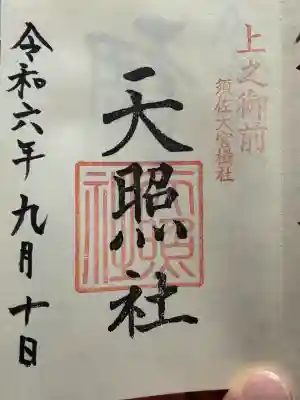 上之御前
須佐大宮摂社
天照社
天照社
令和六年九月十日